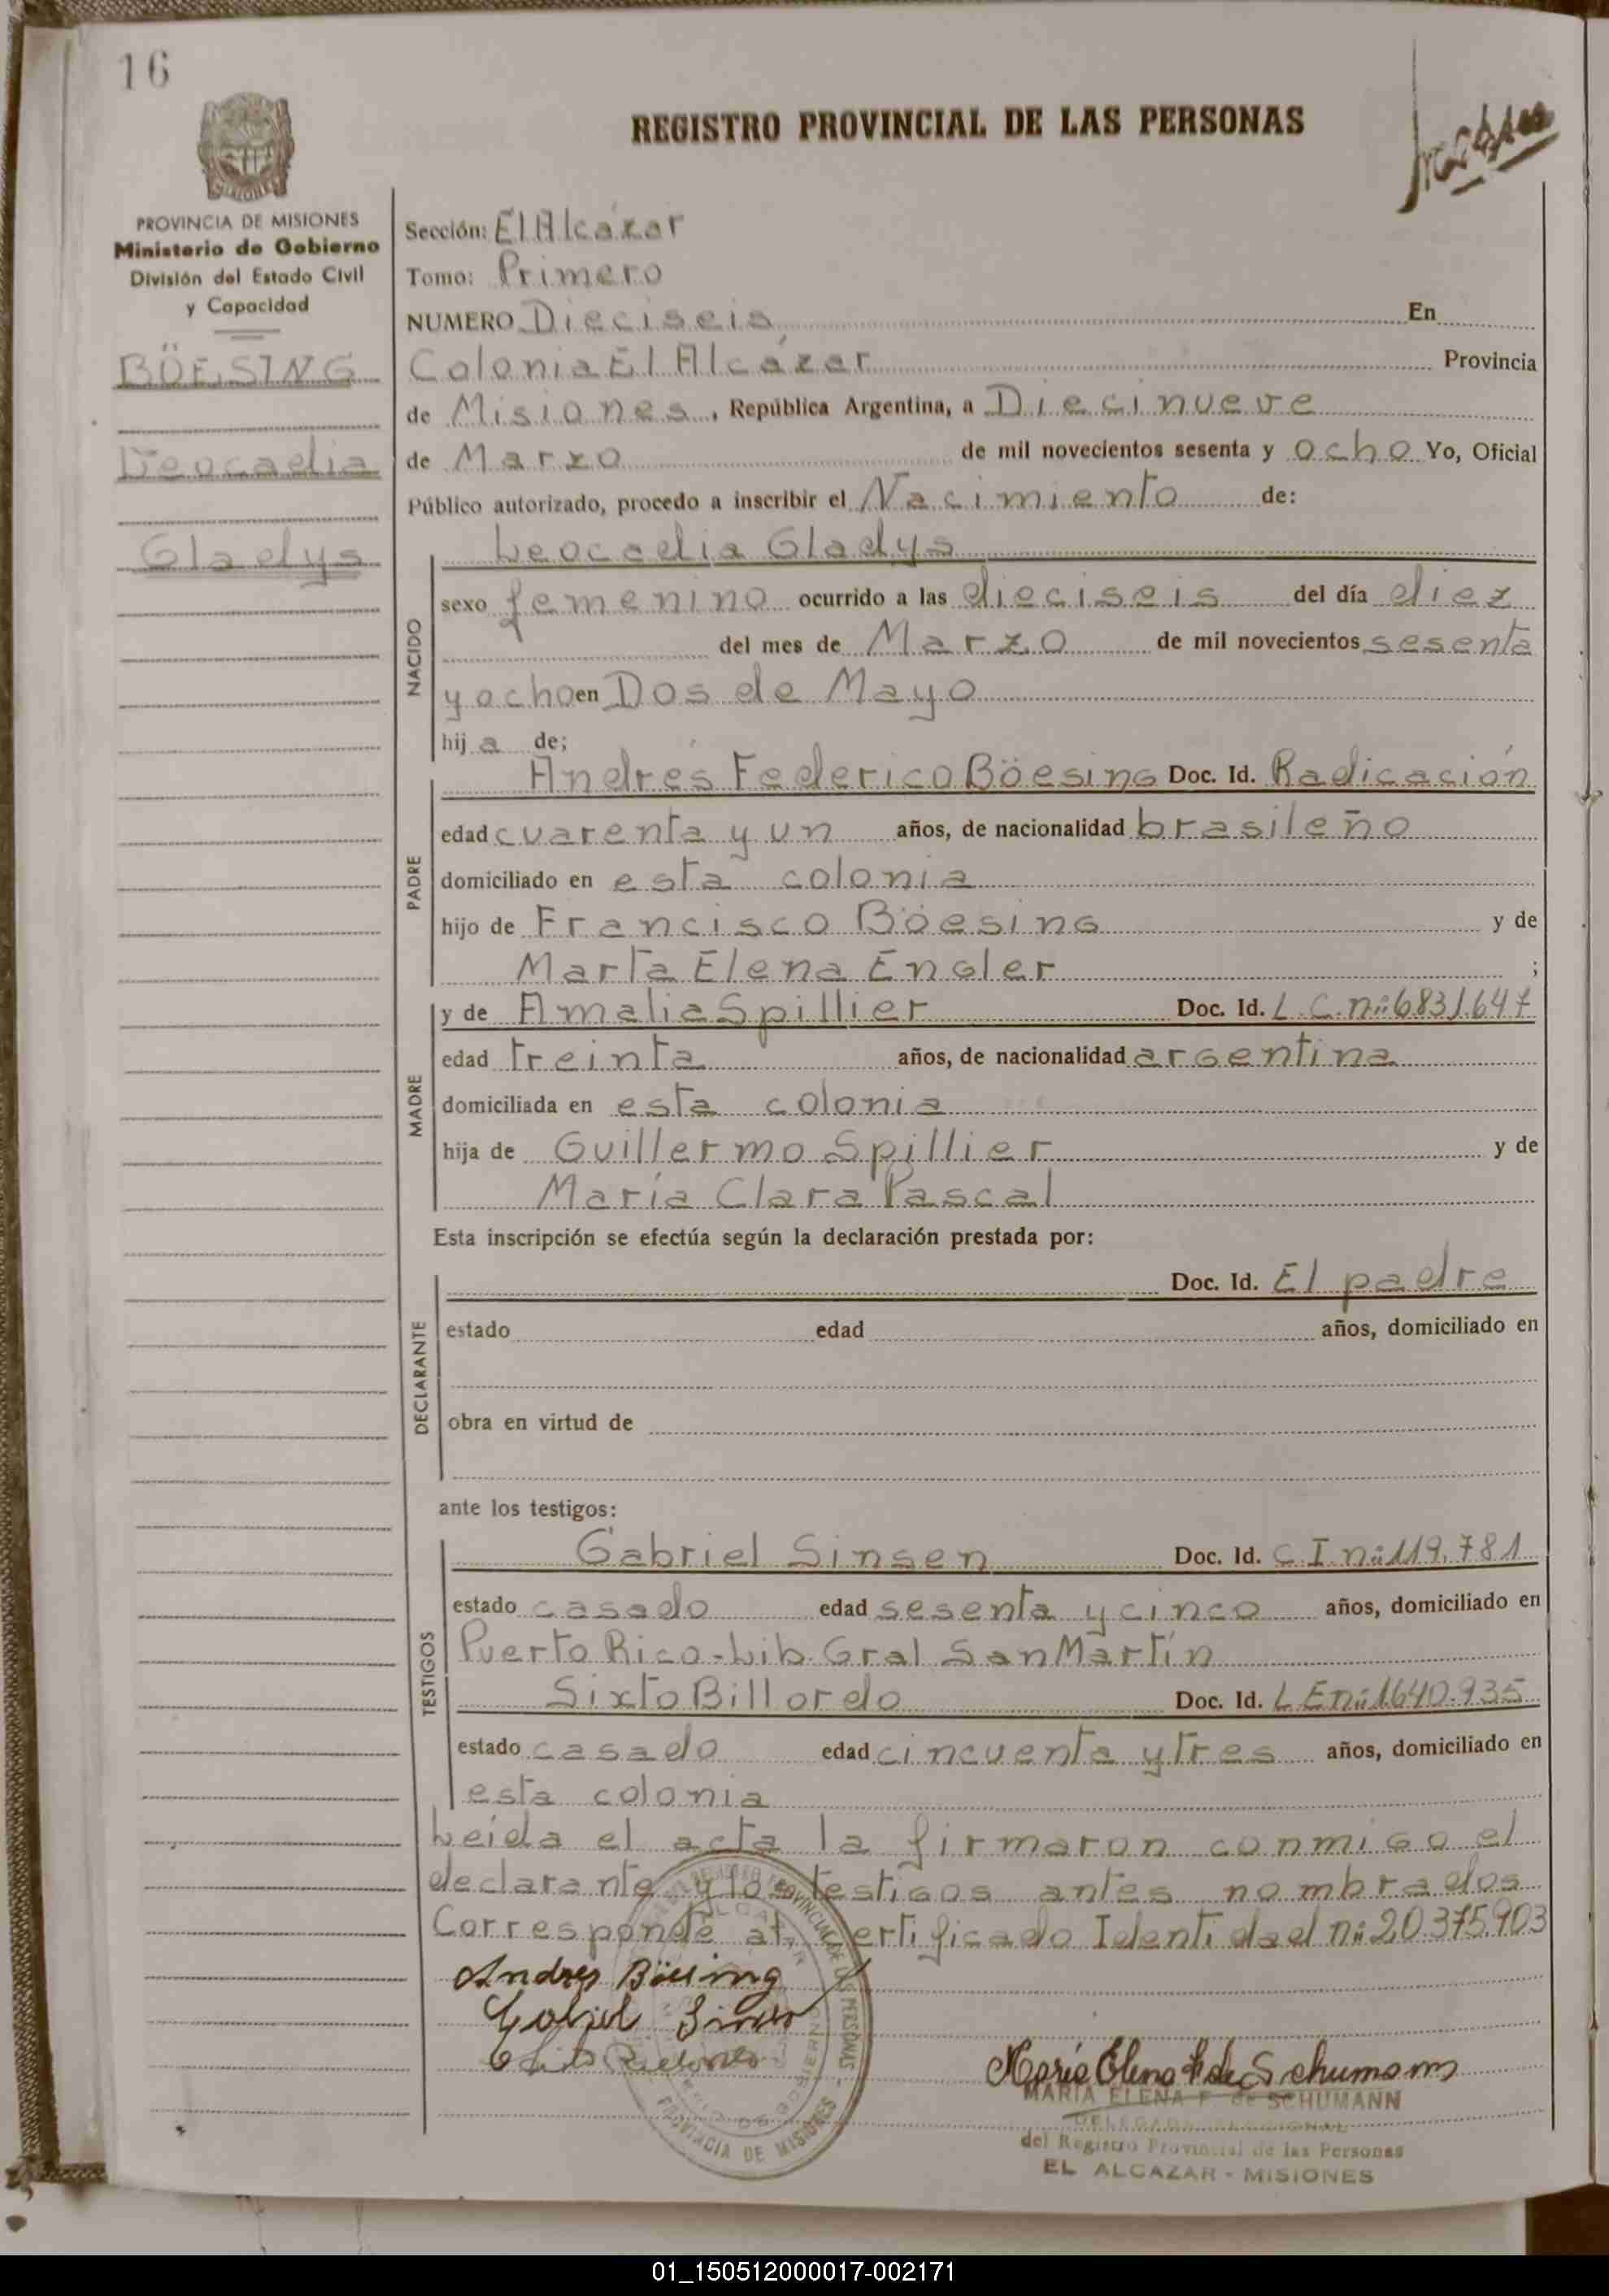 16
REGISTRO PROVINCIAL DE LAS PERSONAS
PROVINCIA DE MISIONES
Ministerio de Gobierno
División del Estado Civil
y Capacidad
BÖESING
Leocadia
Gladys
Sección: El Alcázar
Tomo: Primero
NUMERO Dieciseis En
Colonia El Alcázar Provincia
de Misiones, República Argentina, a Diecinueve
de Marzo de mil novecientos sesenta y ocho Yo, Oficial
Público autorizado, procedo a inscribir el Nacimiento de:
NACIDO
Leocadia Gladys
sexo femenino ocurrido a las dieciseis del día diez
del mes de Marzo de mil novecientos sesenta
y ocho en Dos de Mayo
hij a de;
PADRE
Andrés Federico Böesing Doc. Id. Radicación
edad cuarenta y un años, de nacionalidad brasileño
domiciliado en esta colonia
hijo de Francisco Böesing y de
Marta Elena Engler ;
MADRE
y de Amalia Spillier Doc. Id. L.C.nº 6831.647
edad treinta años, de nacionalidad argentina
domiciliada en esta colonia
hija de Guillermo Spillier y de
María Clara Pascal
Esta inscripción se efectúa según la declaración prestada por:
DECLARANTE
Doc. Id. El padre
estado edad años, domiciliado en
obra en virtud de
ante los testigos:
TESTIGOS
Gabriel Sinsen Doc. Id. C I nº 119.781
estado casado edad sesenta y cinco años, domiciliado en
Puerto Rico-Lib. Gral San Martín
Sixto Billordo Doc. Id. L E nº 1640.935
estado casado edad cincuenta y tres años, domiciliado en
esta colonia
Leida el acta la firmaron conmigo el
declarante y los testigos antes nombrados
Corresponde al certificado Identidad nº 20.375.903
Andres Böesing
María Elena F de Schumann
MARIA ELENA F. de SCHUMANN
DELEGADA SECCIONAL
del Registro Provincial de las Personas
EL ALCAZAR - MISIONES
PROVINCIA DE MISIONES
01_150512000017-002171